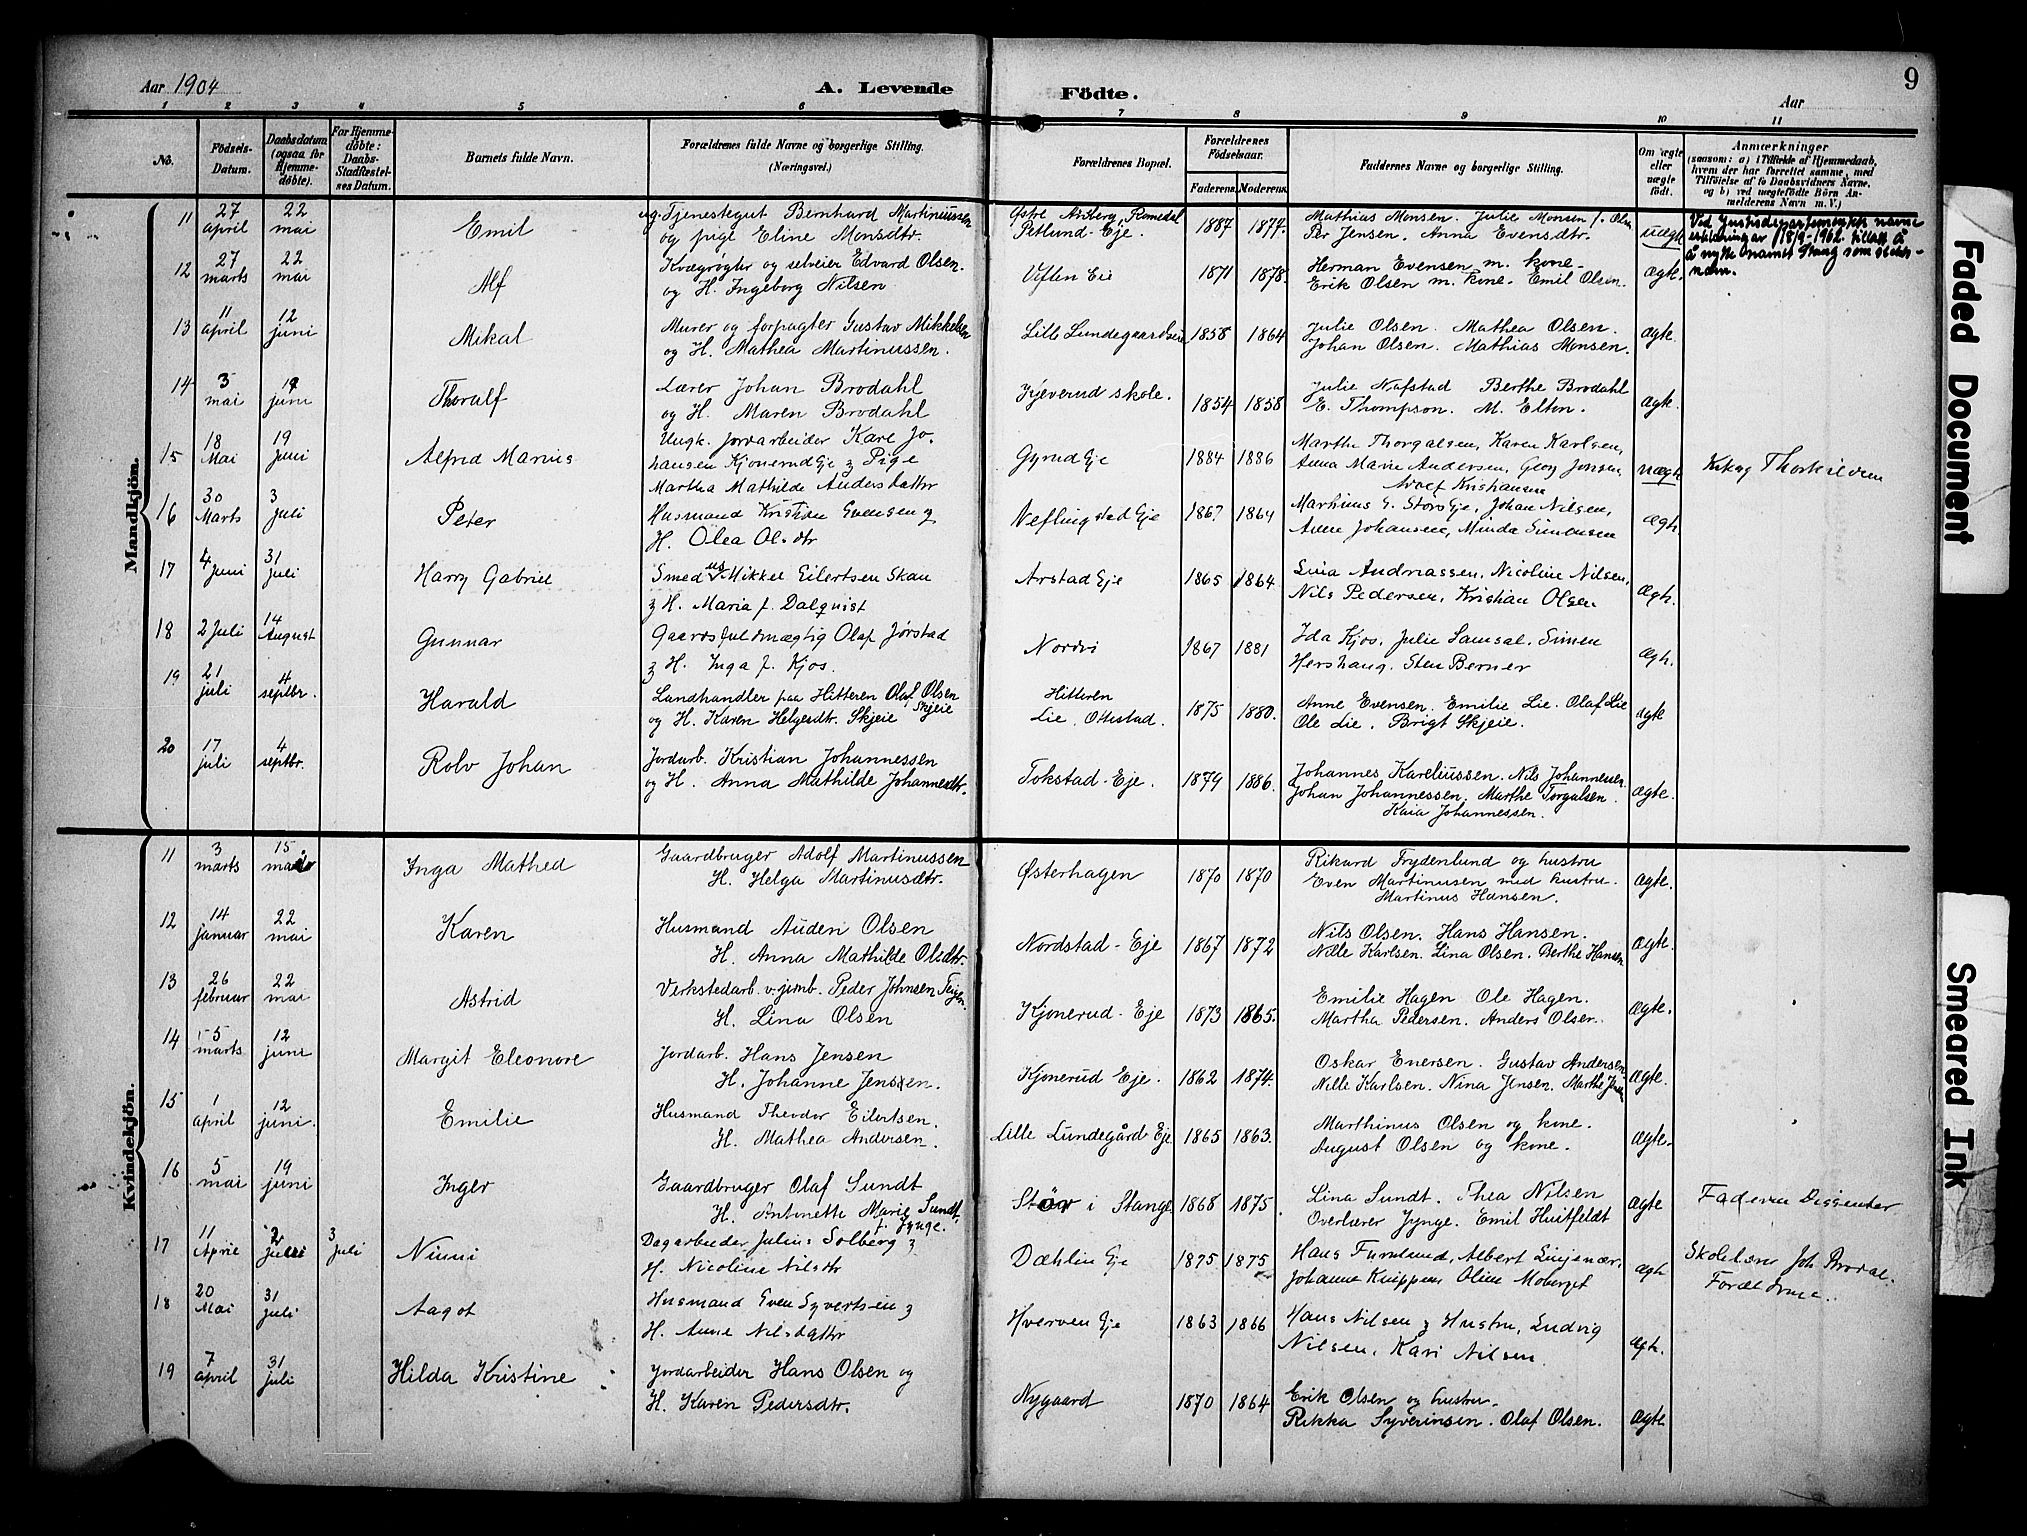 Aar 1904
A. Levende Födte.
Aar
9
1 2 3 4 5 6 7 8 9 10 11
No.
Födsels-Datum.
Daabsdatum (ogsaa for Hjemmedöbte).
For Hjemmedöbte: Daabs-Stadfæstelses Datum.
Barnets fulde Navn.
Forældrenes fulde Navne og borgerlige Stilling. (Næringsvei.)
Forældrenes Bopæl.
Forældrenes Födselsaar.
Faderens. Moderens.
Faddernes Navne og borgerlige Stilling.
Om ægte eller uægte födt.
Anmærkninger
(saasom: a) i Tilfælde af Hjemmedaab, hvem der har forrettet samme, med Tilföielse af to Daabsvidners Navne, og b) ved uægtefödte Börn Anmelderens Navn m. V.)
Mandkjön.
11 27 april 22 mai Emil
ug. Tjenestegut Bernhard Martinussen
og pige Eline Monsdtr.
Østre Arsberg, Romedal
Petlund-Eje.
1887 1877.
Mathias Monsen. Julie Monsen f. Olsen
Per Jensen. Anna Evensdtr.
uægt.
12 27 marts 22 mai Alf
Kvægrøgter og selveier Edvard Olsen.
og H. Ingeborg Nilsen
Uflen Eie
1871 1878.
Herman Evensen m. kone.
Erik Olsen m. kone. Emil Olsen.
ægt.
13 11 april 12 juni Mikal
Murer og forpagter Gustav Mikkelsen
og H. Mathea Martinussen.
Lille Lundegaardseie
1858 1864
Julie Olsen. Mathea Olsen.
Johan Olsen. Mathias Monsen.
ægt.
14 3 mai 19 juni Thoralf
Lærer Johan Brodahl
og H. Maren Brodahl
Kjeverud skole.
1854 1858
Julie Nafstad Berthe Brodahl
E. Thompson. M. Elton.
ægt.
15 18 Mai 19 Juni Alfred Marius
Ungk. Jordarbeider Karl Jo-
hansen Kjonerud Eje & Pige
Martha Mathilde Andersdatter
Gyrud Eje
1884 1886
Marthe Thorgalsen, Karen Karlsen,
Anna Marie Andersen, Georg Jonsen
Adolf Kristiansen
uægt.
16 30 Marts 3 Juli Peter
Husmand Kristian Evensen &
H. Olea Olsdtr
Neflingstad Eje
1867 1864
Martinius E. Stors Eje, Johan Nilsen,
Anne Johansen, Minda Simensen
ægt.
17 4 Juni 31 Juli Harry Gabriel
Smedus Mikkel Eilertsen Skau
& H. Maria f. Dalquist
Arstad Eje
1865 1864
Lina Andreassen, Nicoline Nilsen,
Nils Pedersen, Kristian Olsen
Ægt.
18 2 Juli 14 August Gunnar
Gaardsfuldmægtig Olaf Jørstad
& H. Inga f. Kjos.
Nordvi
1867 1881
Ida Kjos, Julie Samsal, Simen
Hershaug, Sten Berner
Ægt.
19 21 juli 4 septbr. Harald
Landhandler paa Hitteren Olaf Olsen Skjeie
og H. Karen Helgesdtr. Skjeie
Hitteren
Lie, Ottestad.
1875 1880.
Anne Evensen. Emilie Lie. Olaf Lie
Ole Lie. Brigt Skjeie.
ægte
20 17 juli 4 septbr. Rolv Johan
Jordarb. Kristian Johannessen
og H. Anna Mathilde Johannesdtr.
Tokstad-Eje.
1879 1886.
Johannes Kareliussen. Nils Johannessen
Johan Johannessen. Marthe Torgalsen.
Kaia Johannessen.
Ægte.
Ved Justisdepartementets navne-
Kvindekjön.
11 3 marts 15 mai Inga Mathea
Gaardbruger Adolf Martinussen
H. Helga Martinusdtr.
Østerhagen
1870 1870
Rikard Frydenlund og hustru
Even Martinusen med hustru.
Martinus Hansen.
Ægte.
12 14 januar 22 mai Karen
Husmand Auden Olsen
H. Anna Mathilde Olsdtr.
Nordstad-Eje
1867 1872
Nils Olsen. Hans Hansen.
Nille Karlsen. Lina Olsen. Berthe Hansen
Ægte.
13 26 februar 22 mai Astrid
Verkstedarb. v. jernb. Peder Johnsen Teigen
H. Lina Olsen
Kjonerud-Eje
1873 1865.
Emilie Hagen Ole Hagen.
Martha Pedersen. Anders Olsen.
Ægte.
14 5 marts 12 juni Margit Eleonore
Jordarb. Hans Jensen
H. Johanne Jensen.
Kjonerud Eje.
1862 1874.
Oskar Enersen. Gustav Andersen
Nille Karlsen. Nina Jensen. Marthe Jensen
Ægte.
15 1 april 12 juni. Emilie
Husmand Theodor Eilertsen.
H. Mathea Andersen.
Lille Lundegård Eje
1865 1863.
Marthinus Olsen og kone.
August Olsen og kone.
Ægte.
16 5 mai 19 juni Inger
Gaardbruger Olaf Sundt
H. Antonette Marie Sundt,
f. Jynge.
Stör i Stange
1868 1875
Lina Sundt. Thea Nilsen
Overlærer Jynge. Emil Huitfeldt
Ægte
Faderen Dissenter
17 11 Aprie 2 Juli 3 Juli Ninni
Dagarbeider Julius Solberg &
H. Nicoline Nilsdtr
Dæhlin Eje
1875 1875
Hans Furulund, Albert Linjenær,
Johanne Knippen Oline Moberget
ægt
Skolelærer Joh. Brodal.
18 20 Mai 31 Juli Aagot
Husmand Even Syvertsen &
H. Anne Nilsdatter
Hverven Eje
1863 1866
Hans Nilsen & Hustru, Ludvig
Nilsen, Kari Nilsen.
Ægt.
19 7 april 31 juli Hilda Kristine
Jordarbeider Hans Olsen og
H. Karen Pedersdtr.
Nygaard
1870 1864
Erik Olsen og hustru.
Rikka Syverinsen. Olaf Olsen.
Ægte
Faded Document
Smeared Ink